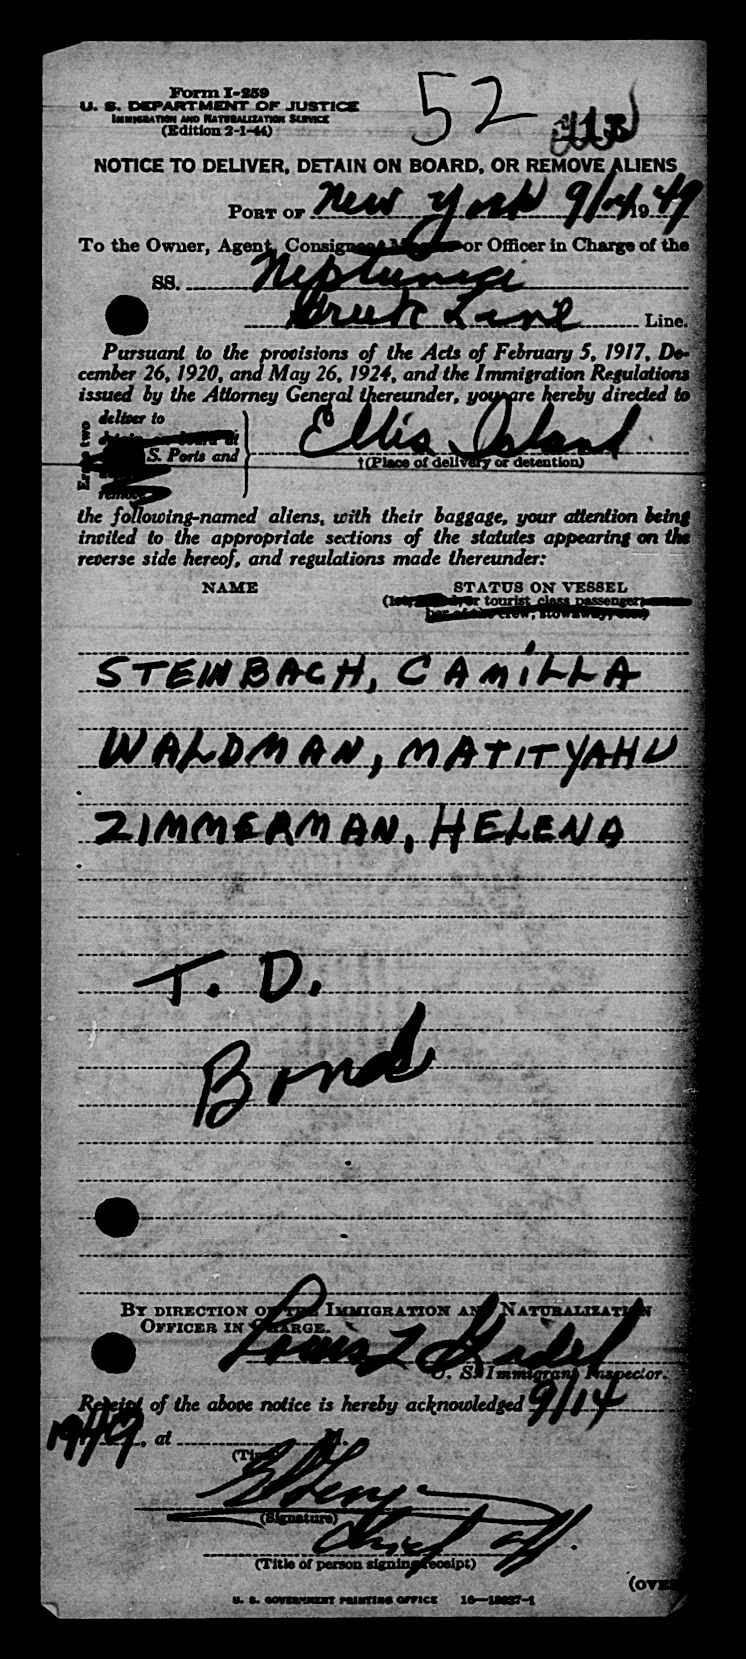 Form I-259
U. S. DEPARTMENT OF JUSTICE
IMMIGRATION AND NATURALIZATION SERVICE
(Edition 2-1-44)
52
NOTICE TO DELIVER, DETAIN ON BOARD, OR REMOVE ALIENS
PORT OF New York 9/14 1949
To the Owner, Agent, Consignee, or Officer in Charge of the
SS. Neptunia
Greek Line Line.
Pursuant to the provisions of the Acts of February 5, 1917, De-
cember 26, 1920, and May 26, 1924, and the Immigration Regulations
issued by the Attorney General thereunder, you are hereby directed to
deliver to
Ellis Island
S. Ports and
Erase two
†(Place of delivery or detention)
remove
the following-named aliens, with their baggage, your attention being
invited to the appropriate sections of the statutes appearing on the
reverse side hereof, and regulations made thereunder:
NAME STATUS ON VESSEL
or tourist class passenger,
STEINBACH, CAMILLA
WALDMAN, MATITYAHU
ZIMMERMAN, HELENA
T. D.
Bond
BY DIRECTION OF THE IMMIGRATION AND NATURALIZATION
OFFICER IN CHARGE.
Louis
U. S. Immigrant Inspector.
Receipt of the above notice is hereby acknowledged 9/14
1949, at M.
(Time)
(Signature)
Chief off.
(Title of person signing receipt)
(OVER
U. S. GOVERNMENT PRINTING OFFICE 16—18627-1